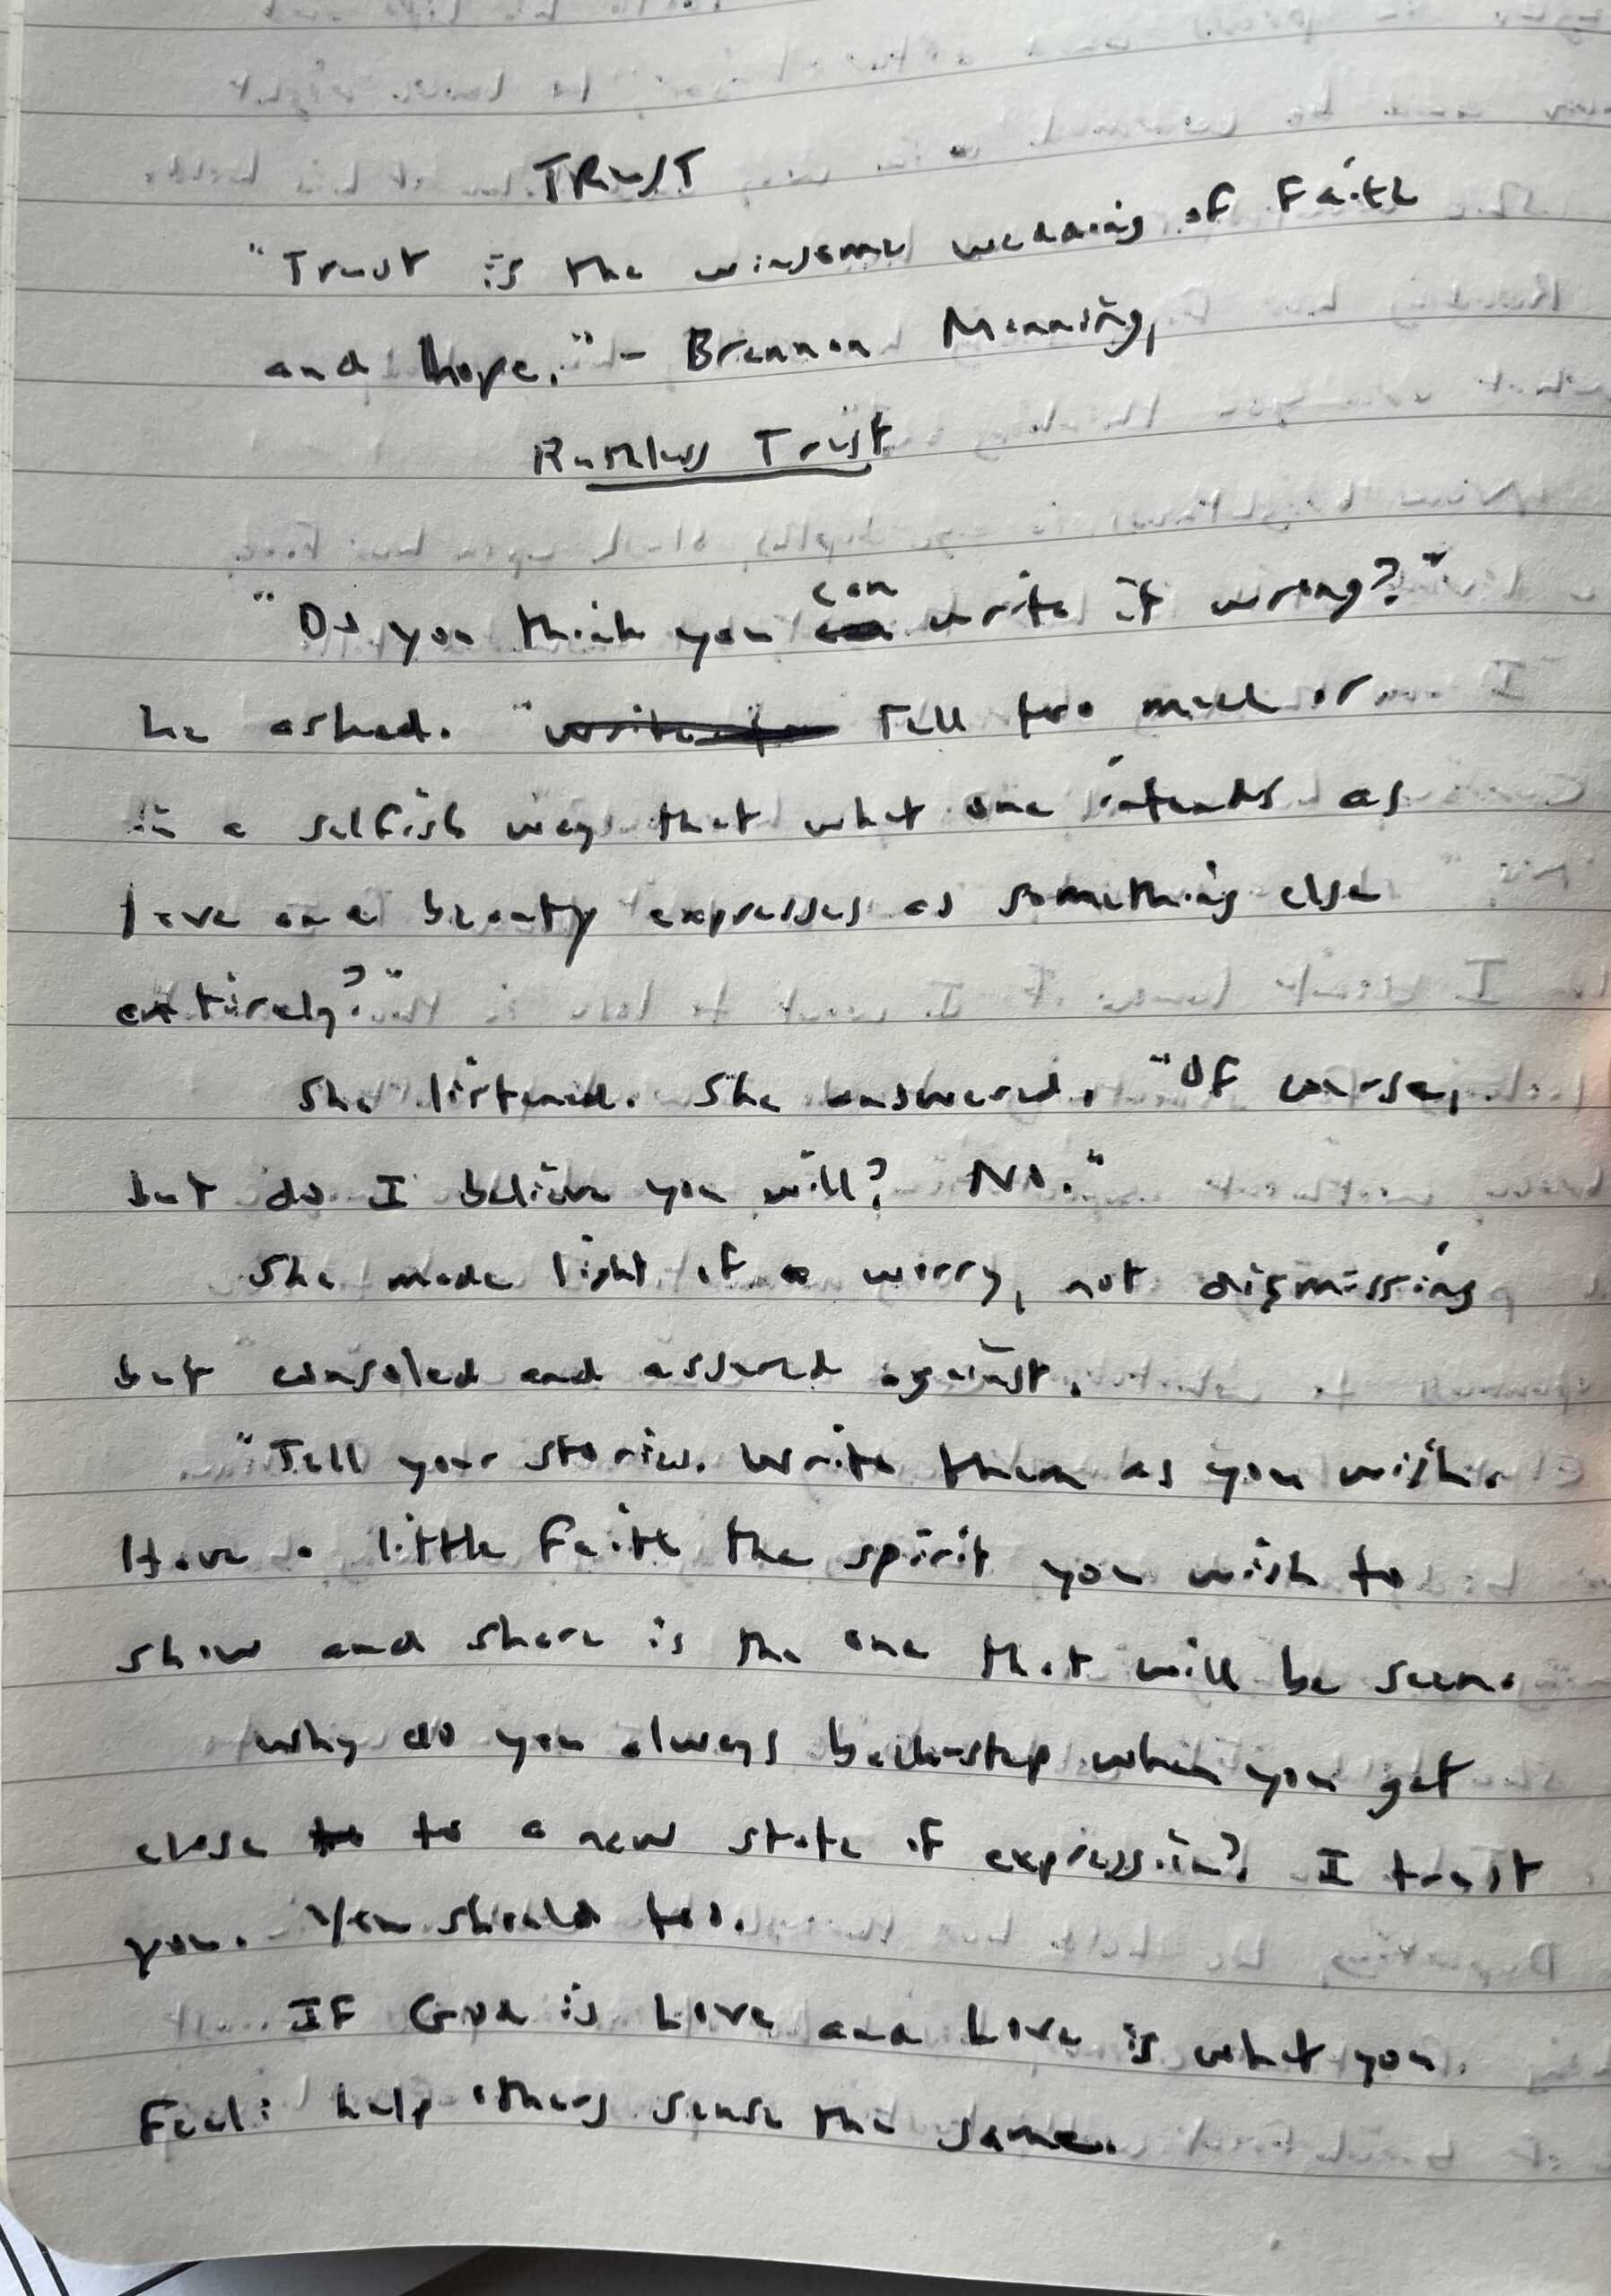 TRUST
"Trust is the winsome wedding of Faith
and hope." - Brennan Manning,
Ruthless Trust
"Do you think you can write it wrong?"
he asked. "Tell too much or
in a selfish way that what one intends as
love and beauty expresses as something else
entirely?"
She listened. She answered, "Of course,
but do I believe you will? No."
She made light of a worry, not dismissing
but consoled and assured against.
"Tell your stories. Write them as you wish.
Have a little Faith the spirit you wish to
show and share is the one that will be seen.
Why do you always back-step when you get
close to a new state of expression? I trust
you. You should too.
IF God is Love and Love is what you
Feel: help others sense the same.